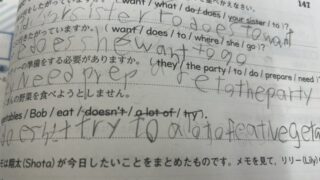 べかえなさい。 141
want / what / do / does / your sister / to )?
sister to does to want
だきたがっていますか。 ( want / does / to / where / she / go )?
does she want to go
ーの準備をする必要がありますか。 ( they / the party / to / do / prepare / need /
Need prep a re to the party
の野菜を食べようとしません。
vegetables / Bob / eat / doesn't / a lot of / try ).
doesn't try to a lot of eat vegeta
は翔太(Shota)が今日したいことをまとめたものです。メモを見て, リリー(Lily)